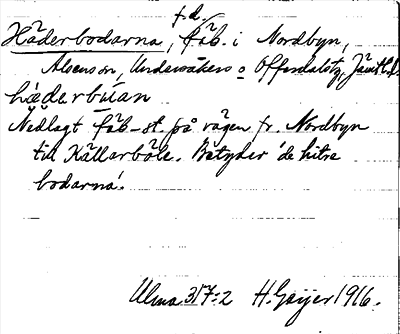 f.d.
Häderbodarna, fäb. i Nordbyn,
Alsens sn, Undersåkers o Offerdals tg, Jämtl. l.
hæderbúan
Nedlagt fäb-st. på vägen fr. Nordbyn
till Källarböle. Betyder 'de hitre
bodarna'.
Ulma 317:2 H. Geijer 1916.